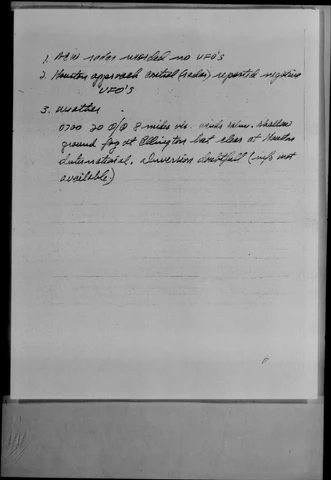 1. AC&W radar recorded no UFO's
2. Houston approach control (radar) reported negative
UFO's
3. Weather
0700 20 8 miles vis. winds calm. shallow
ground fog at Ellington but clear at Houston
International. Inversion doubtful (info not
available.)